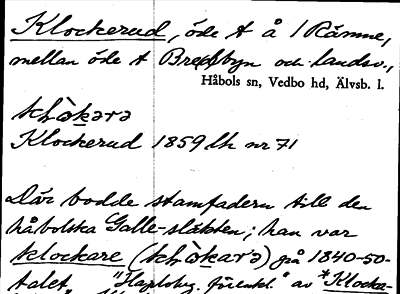 Klockerud, öde t å 1 Rämne,
mellan öde t Bredsbyn och landsv.,
Håbols sn, Vedbo hd, Älvsb. l.
Klockerud 1859 lh nr 71
Där bodde stamfadern till den
håbolska Galle-släkten; han var
klockare () på 1840-50-
talet. "Haplolog. förenkl." av *Klocka-